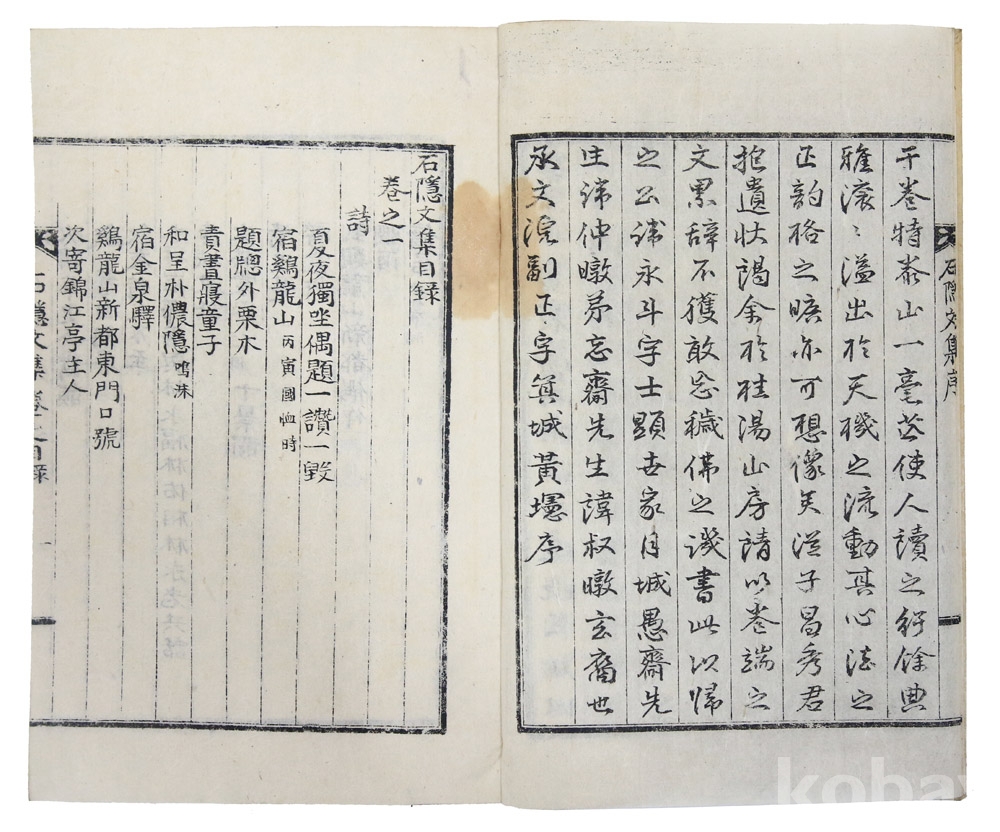 石隱文集序
于卷特泰山一毫芒使人讀之紆餘典
雅滾〻溢出於天機之流動其心德之
正韵格之曠亦可想像矣從子昌秀君
抱遺狀謁余於桂湯山房請以卷端之
文累辭不獲敢忘穢佛之譏書此以歸
之公諱永斗字士顯世家月城愚齋先
生諱仲暾弟忘齋先生諱叔暾玄裔也
承文院副正字箕城黃壥序
石隱文集目錄
卷之一
詩
夏夜獨坐偶題一讚一毀
宿鷄龍山 丙寅國恤時
題牕外栗木
責晝寢童子
和呈朴儂隱鳴洙
宿金泉驛
鷄龍山新都東門口號
次寄錦江亭主人
石隱文集卷之一目錄
kobay